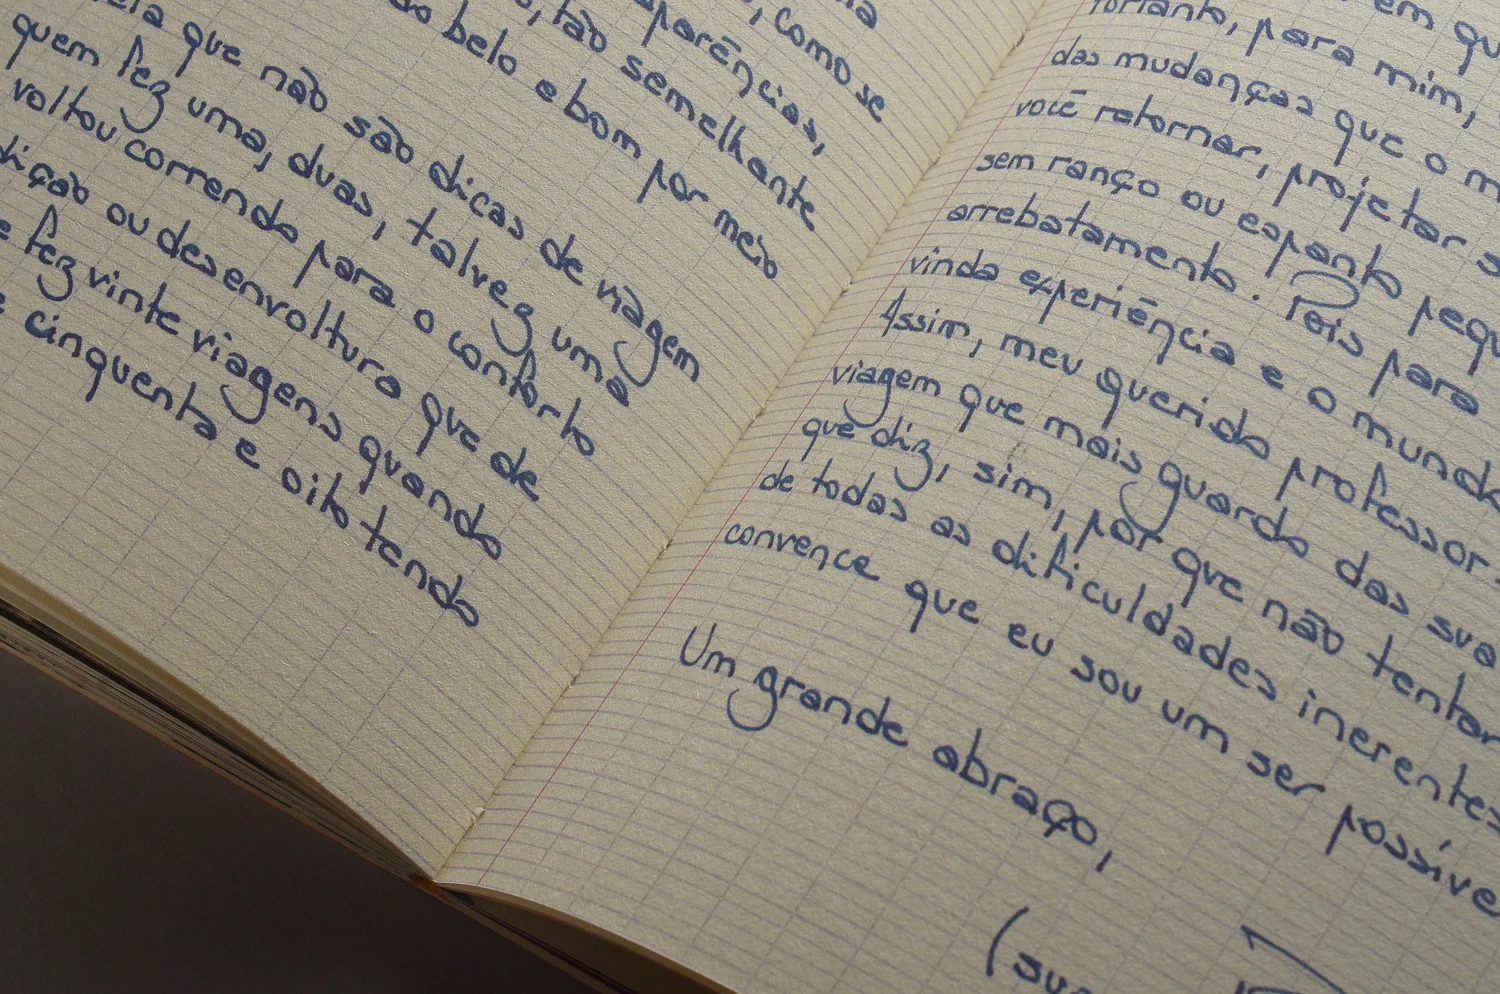 como se
aparências,
tão semelhante
belo e bom por meio
que não são dicas de viagem
quem fez uma, duas, talvez uma
voltou correndo para o conforto
ou desenvoltura que de
fez vinte viagens quando
cinquenta e oito tendo
em
Portanto, para mim,
das mudanças que o
você retornar, projetar
sem ranço ou espanto
arrebatamento. Pois para
vinda experiência e o
Assim, meu querido professor
viagem que mais guardo das
que diz, sim, por que não tentar
de todas as dificuldades inerentes
convence que eu sou um ser
Um grande abraço,